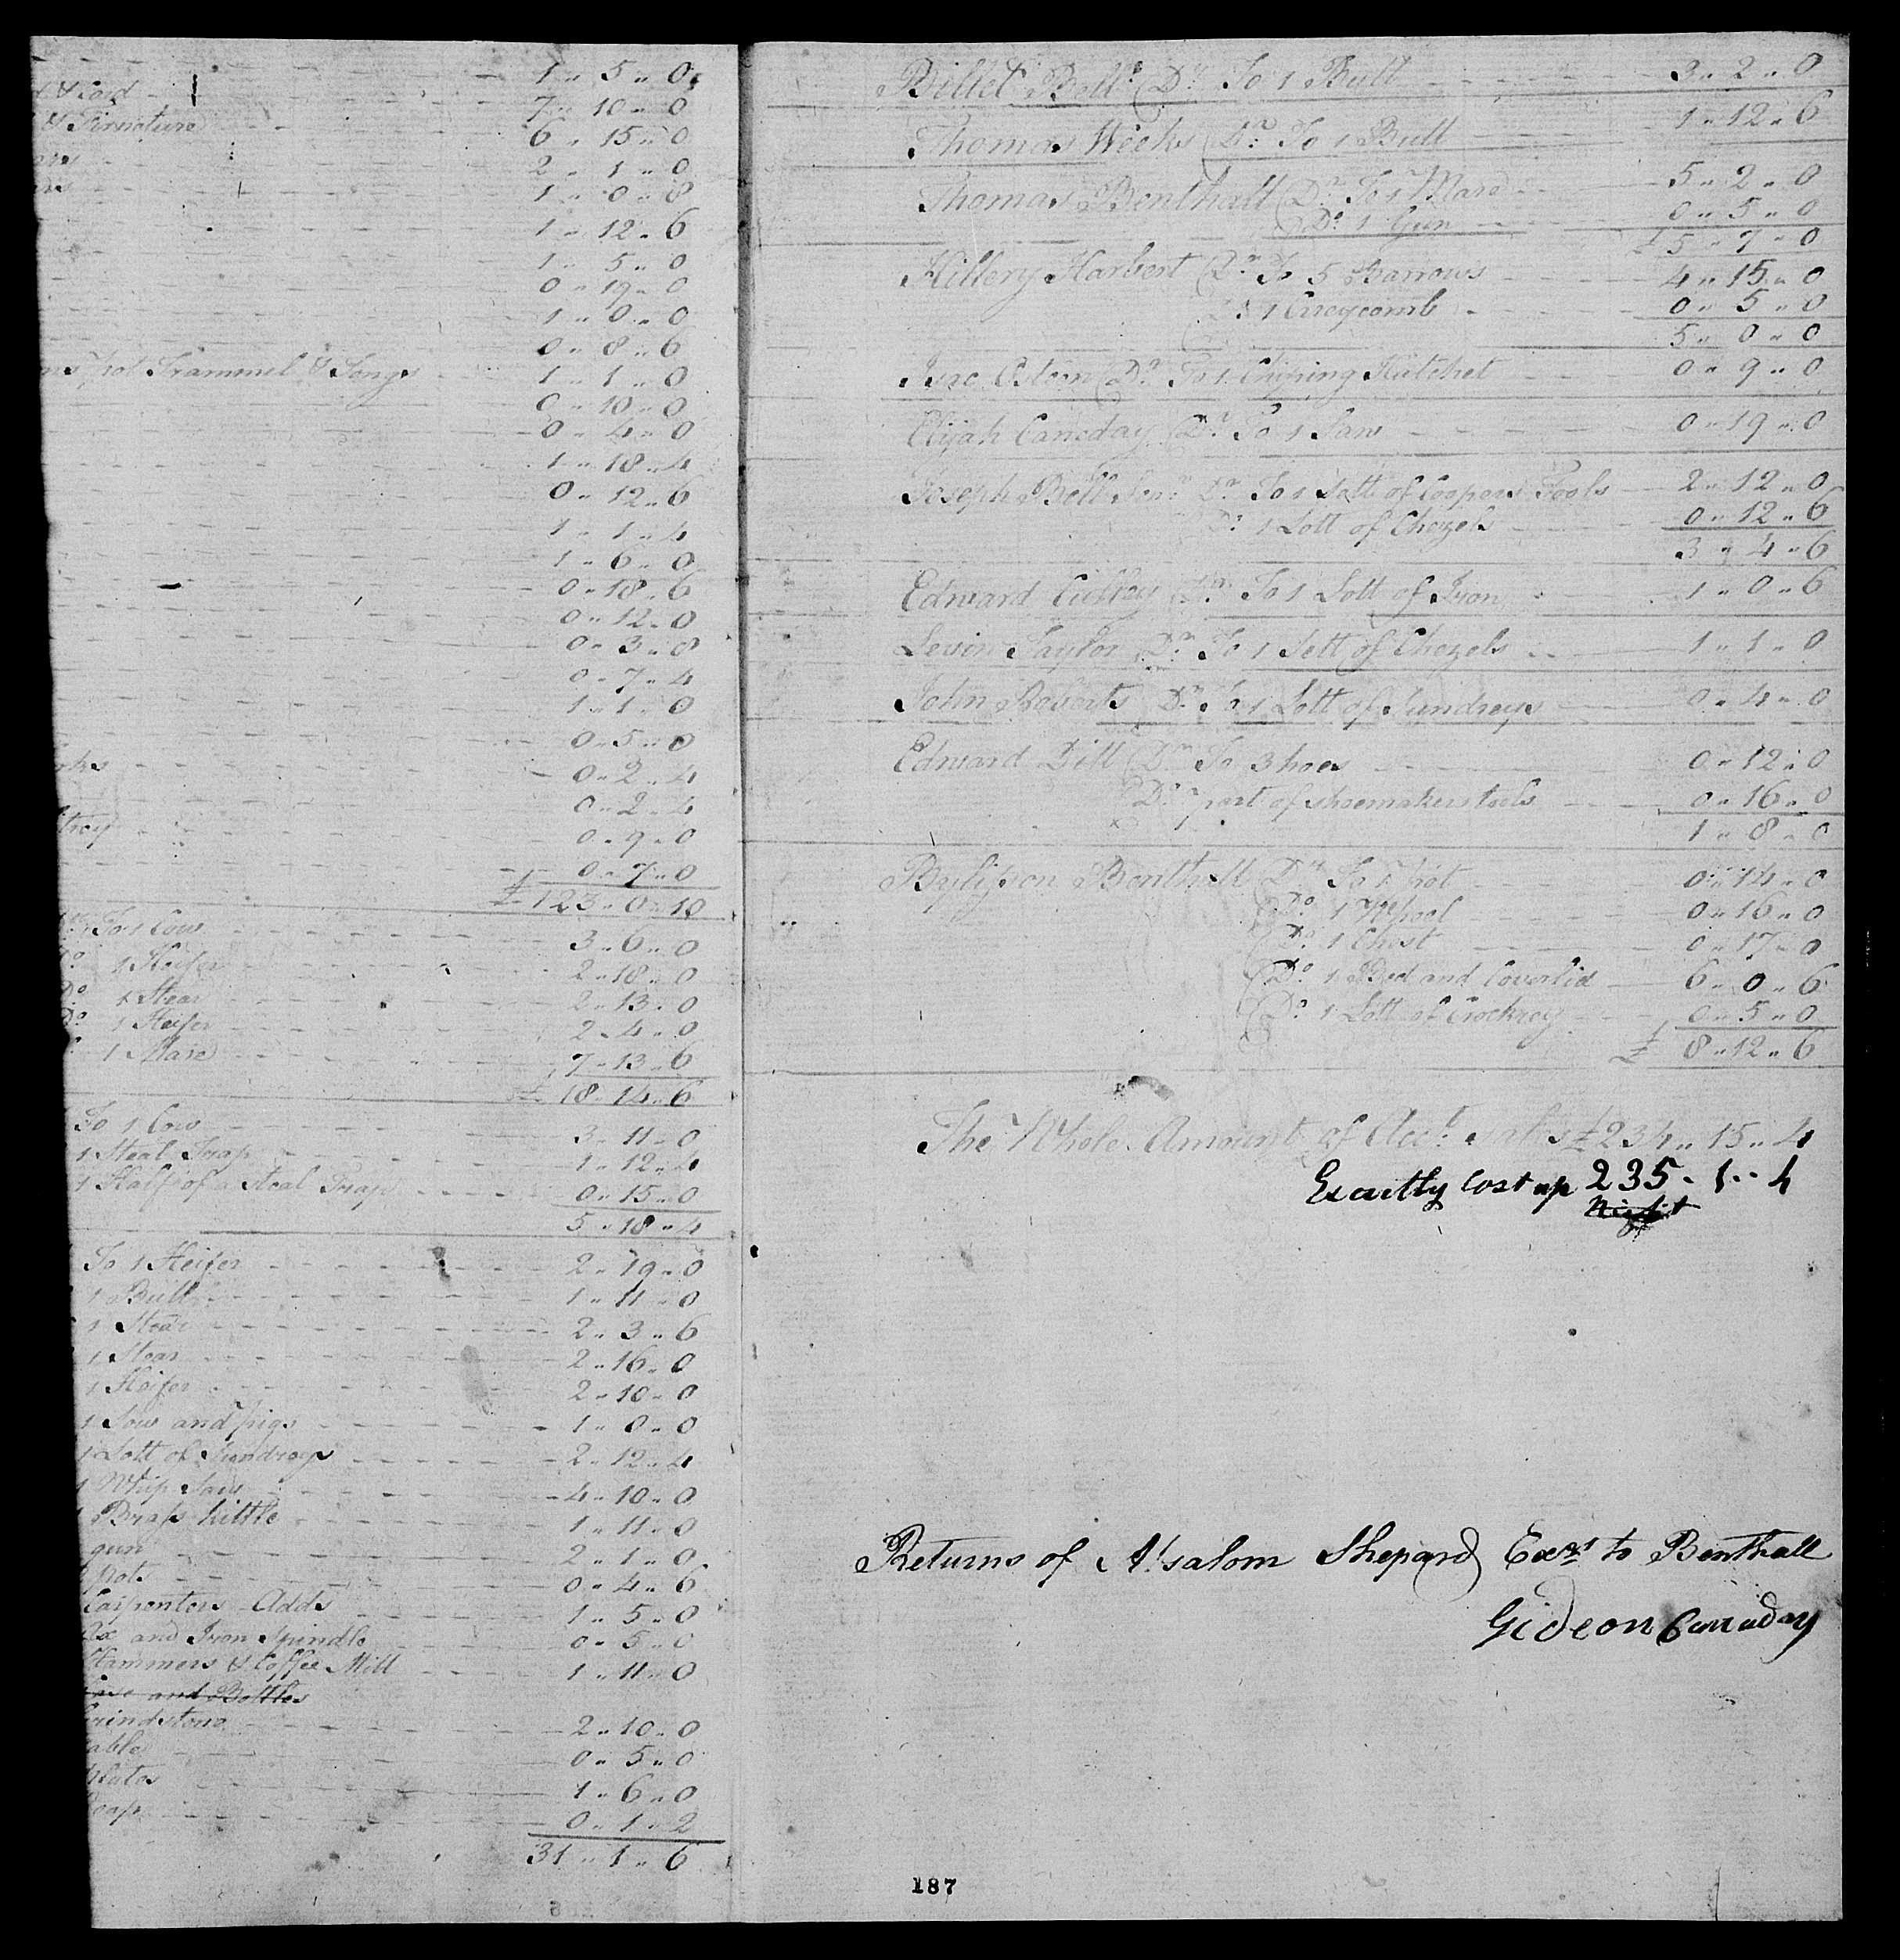 1 " 5 " 0
& Cord 7 " 10 " 0
& Firnature 6 " 15 " 0
2 " 1 " 0
1 " 0 " 8
1 " 12 " 6
1 " 5 " 0
0 " 19 " 0
1 " 0 " 0
0 " 8 " 6
pot Trammel & Tongs 1 " 1 " 0
0 " 10 " 0
0 " 4 " 0
1 " 18 " 4
0 " 12 " 6
1 " 1 " 4
1 " 6 " 0
0 " 18 " 6
0 " 12 " 0
0 " 3 " 8
0 " 7 " 4
1 " 1 " 0
0 " 5 " 0
0 " 2 " 4
0 " 2 " 4
0 " 9 " 0
0 " 7 " 0
£ 123 " 0 " 10
To 1 Cow 3 " 6 " 0
Do 1 Heifer 2 " 18 " 0
Do 1 Stear 2 " 13 " 0
Do 1 Heifer 2 " 4 " 0
1 Mare 7 " 13 " 6
£ 18 " 14 " 6
To 1 Cow 3 " 11 " 0
1 Steal Trap 1 " 12 " 4
1 Half of a Steal Trap 0 " 15 " 0
5 " 18 " 4
To 1 Heifer 2 " 19 " 0
1 Bull 1 " 11 " 0
1 Stear 2 " 3 " 6
1 Stear 2 " 16 " 0
1 Heifer 2 " 10 " 0
1 Sow and pigs 1 " 8 " 0
1 Lott of Sundreys 2 " 12 " 4
1 Whip Saw 4 " 10 " 0
Brass kittle 1 " 11 " 0
gun 2 " 1 " 0
pot 0 " 4 " 6
Carpenters Adds 1 " 5 " 0
Ax and Iron Spindle 0 " 5 " 0
Hammers & Coffee Mill 1 " 11 " 0
and Bottles
Grindstone 2 " 10 " 0
able 0 " 5 " 0
plates 1 " 6 " 0
0 " 1 " 2
31 " 1 " 6
Billet Bell Dr To 1 Bull 3 " 2 " 0
Thomas Weeks Dr To 1 Bull 1 " 12 " 6
Thomas Benthall Dr To 1 Mare 5 " 2 " 0
Do 1 Gun 0 " 5 " 0
£ 5 " 7 " 0
Hillery Harbert Dr To 5 Barrows 4 " 15 " 0
Do 1 Cureycomb 0 " 5 " 0
5 " 0 " 0
Dr To 1 Chiping Hatchet 0 " 9 " 0
Elijah Caneday Dr To 1 Saw 0 " 19 " 0
Joseph Bell Senr Dr To 1 Sett of Coopers Tools 2 " 12 " 0
Do 1 Lott of Chezels 0 " 12 " 6
3 " 4 " 6
Edward Dr To 1 Lott of Iron 1 " 0 " 6
Levin Taylor Dr To 1 Sett of Chezels 1 " 1 " 0
John Roberts Dr To 1 Lott of Sundreys 0 " 4 " 0
Edward Dill Dr To 3 hoes 0 " 12 " 0
Do part of shoemakers tools 0 " 16 " 0
1 " 8 " 0
Benthall Dr To 1 pot 0 " 14 " 0
Do 1 Wheel 0 " 16 " 0
Do 1 Chest 0 " 17 " 0
Do 1 Bed and Coverlid 6 " 0 " 6
Do 1 Lott of Crockrey 0 " 5 " 0
£ 8 " 12 " 6
The Whole Amount of Acct sales £ 234 " 15 " 4
Exactly Cost up 235 " 1 " 4
Returns of Absalom Shepard Exr to Benthall
Gideon Canaday
187